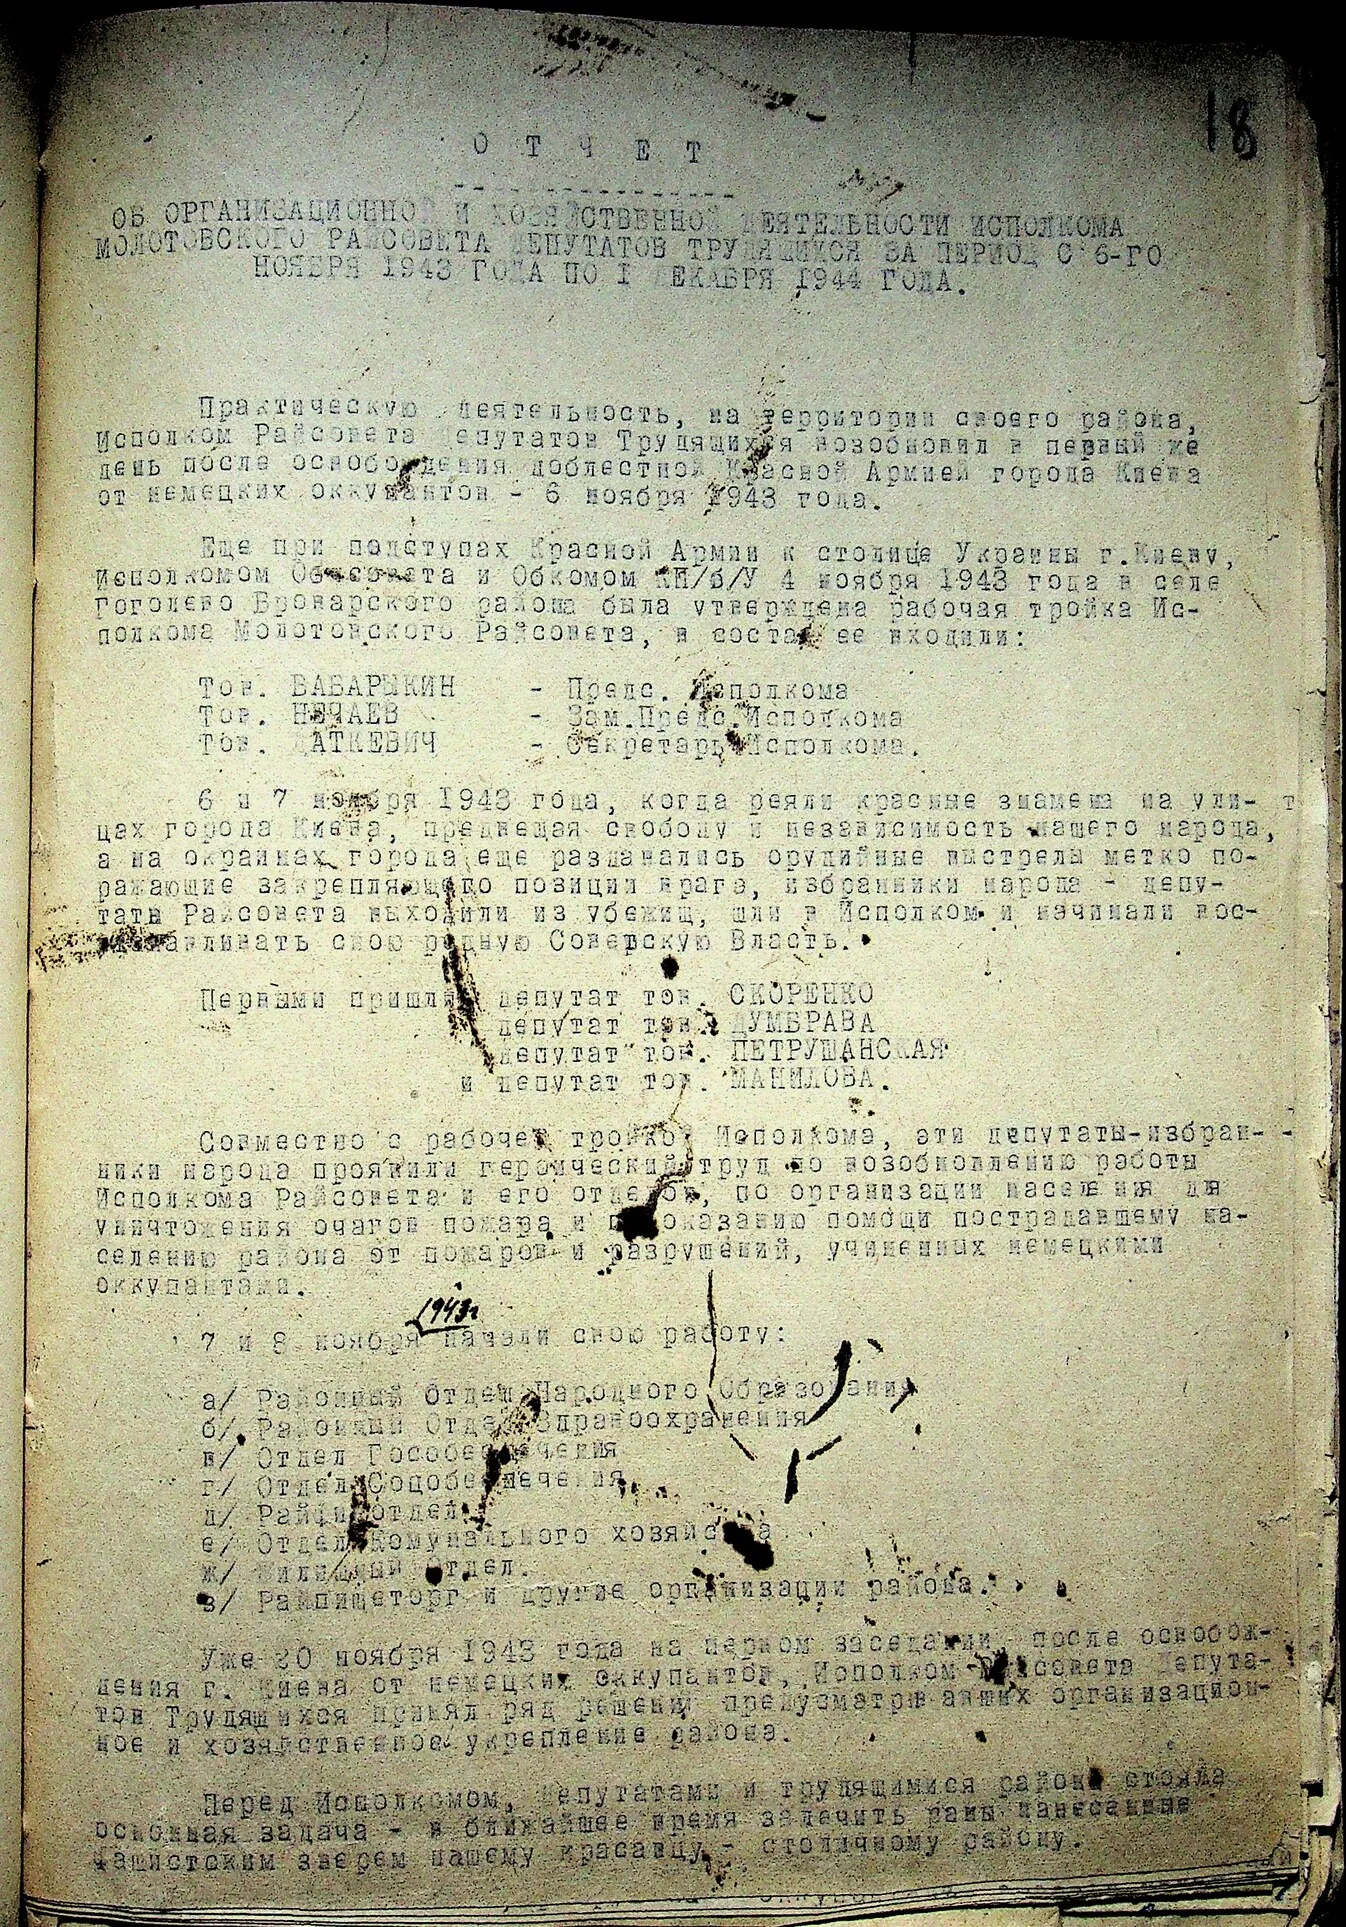 18
О Т Ч Е Т
ОБ ОРГАНИЗАЦИОННОЙ И ХОЗЯЙСТВЕННОЙ ДЕЯТЕЛЬНОСТИ ИСПОЛКОМА
МОЛОТОВСКОГО РАЙСОВЕТА ДЕПУТАТОВ ТРУДЯЩИХСЯ ЗА ПЕРИОД С 6-ГО
НОЯБРЯ 1943 ГОДА ПО 1 ДЕКАБРЯ 1944 ГОДА.
Практическую деятельность, на территории своего района,
Исполком Райсовета Депутатов Трудящихся возобновил в первый же
день после освобождения доблестной Красной Армией города Киева
от немецких оккупантов - 6 ноября 1943 года.
Еще при подступах Красной Армии к столице Украины г.Киеву,
Исполкомом Облсовета и Обкомом КП/б/У 4 ноября 1943 года в селе
Гоголево Броварского района была утверждена рабочая тройка Ис-
полкома Молотовского Райсовета, в состав ее входили:
Тов. БАБАРЫКИН - Предс. Исполкома
Тов. НЕЧАЕВ - Зам.Предс.Исполкома
Тов. ДАТКЕВИЧ - Секретарь Исполкома.
6 и 7 ноября 1943 года, когда реяли красные знамена на ули-
цах города Киева, предвещая свободу и независимость нашего народа,
а на окраинах города еще раздавались орудийные выстрелы метко по-
ражающие закрепляющего позиции врага, избранники народа - депу-
таты Райсовета выходили из убежищ, шли в Исполком и начинали вос-
танавливать свою родную Советскую Власть.
Первыми пришли депутат тов. СКОРЕНКО
депутат тов. ДУМБРАВА
депутат тов. ПЕТРУШАНСКАЯ
и депутат тов. МАНИЛОВА.
Совместно с рабочей тройкой Исполкома, эти депутаты-избран-
ники народа проявили героический труд по возобновлению работы
Исполкома Райсовета и его отделов, по организации населения для
уничтожения очагов пожара и по оказанию помощи пострадавшему на-
селению района от пожаров и разрушений, учиненных немецкими
оккупантами.
1943г
7 и 8 ноября начали свою работу:
а/ Районный Отдел Народного Образования
б/ Районный Отдел Здравоохранения
в/ Отдел Гособеспечения
г/ Отдел Соцобеспечения
д/ Райфинотдел
е/ Отдел Комунального хозяйства
ж/ Жилищный Отдел.
з/ Райпищеторг и другие организации района.
Уже 20 ноября 1943 года на первом заседании, после освобож-
дения г. Киева от немецких оккупантов, Исполком Райсовета Депута-
тов Трудящихся принял ряд решений предусматривавших организацион-
ное и хозяйственное укрепление района.
Перед Исполкомом, депутатами и трудящимися района стояла
основная задача - в ближайшее время залечить раны нанесенные
фашистским зверем нашему красавцу - столичному району.